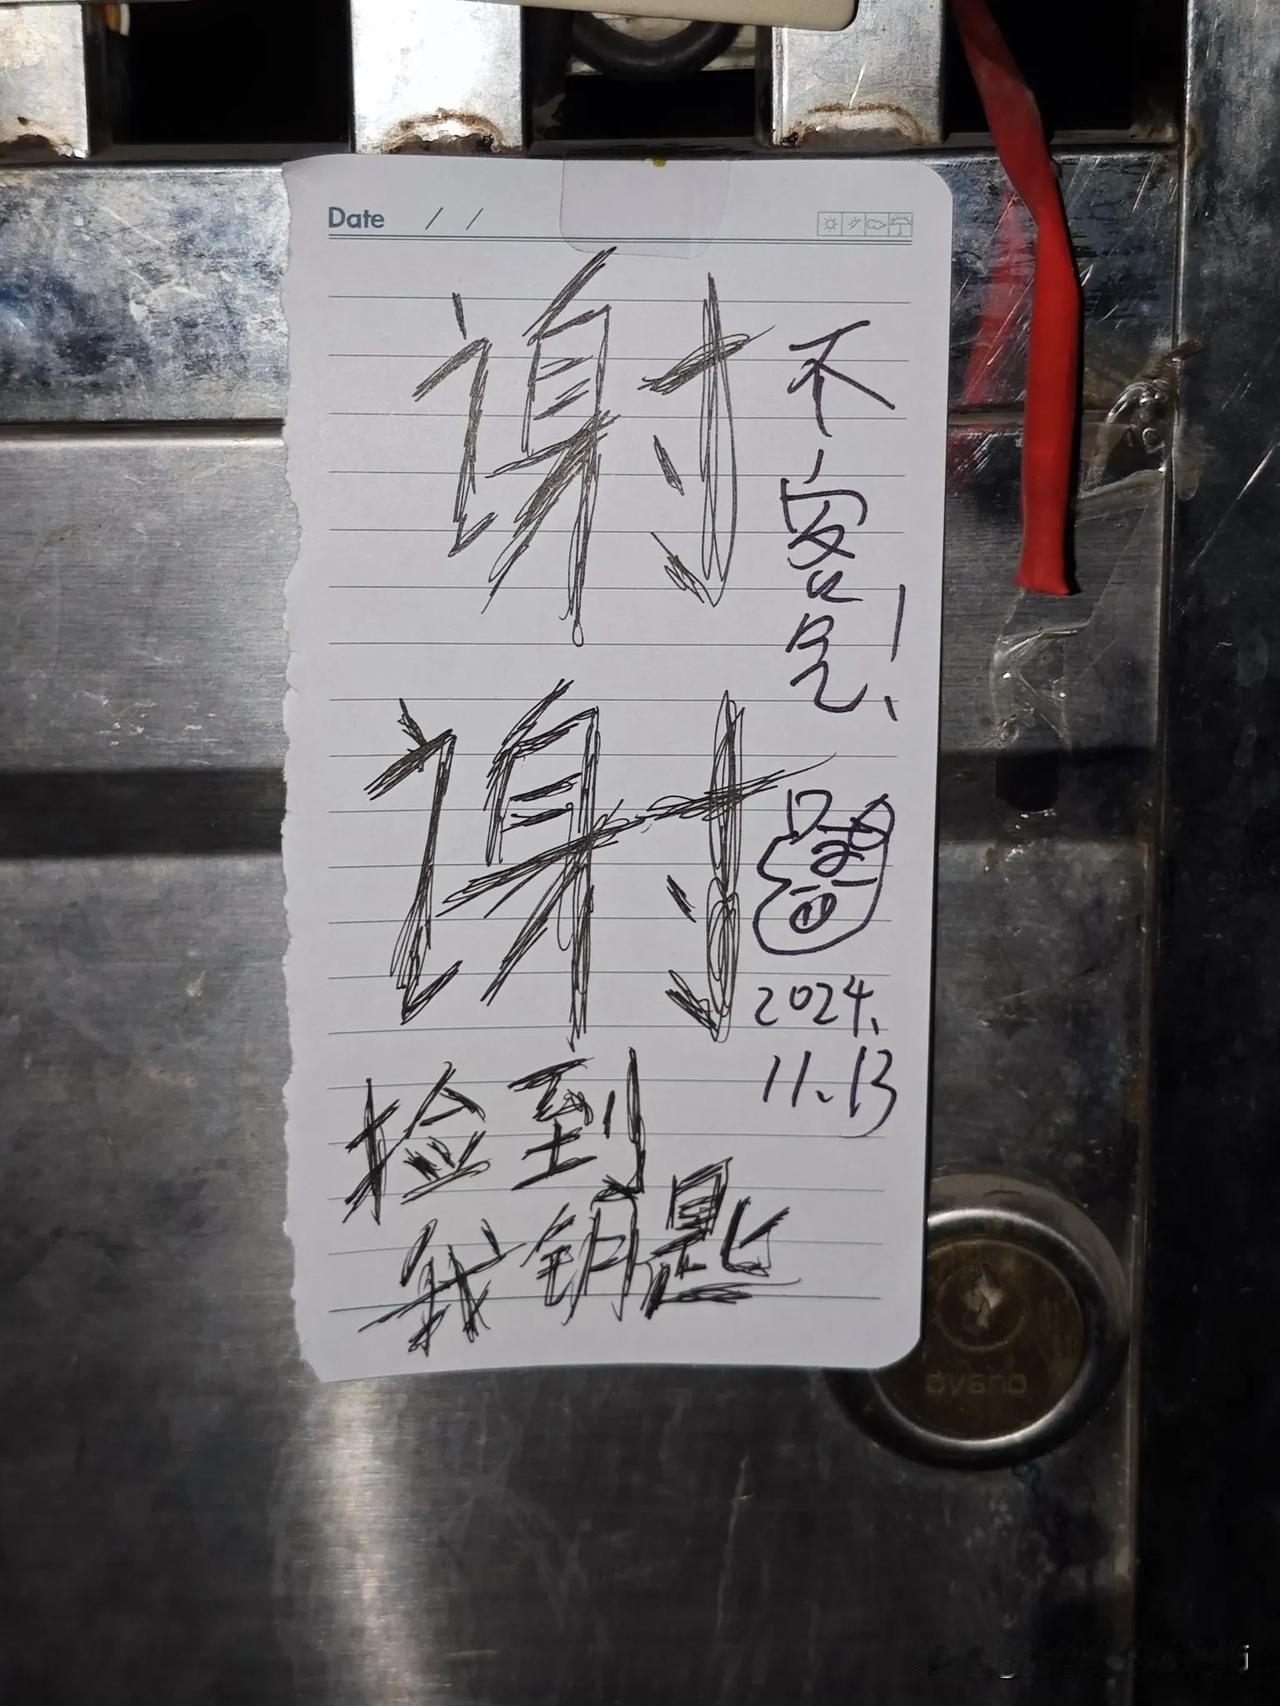 Date / /
谢
谢
捡到
我钥匙
不客气!
2024.
11.13